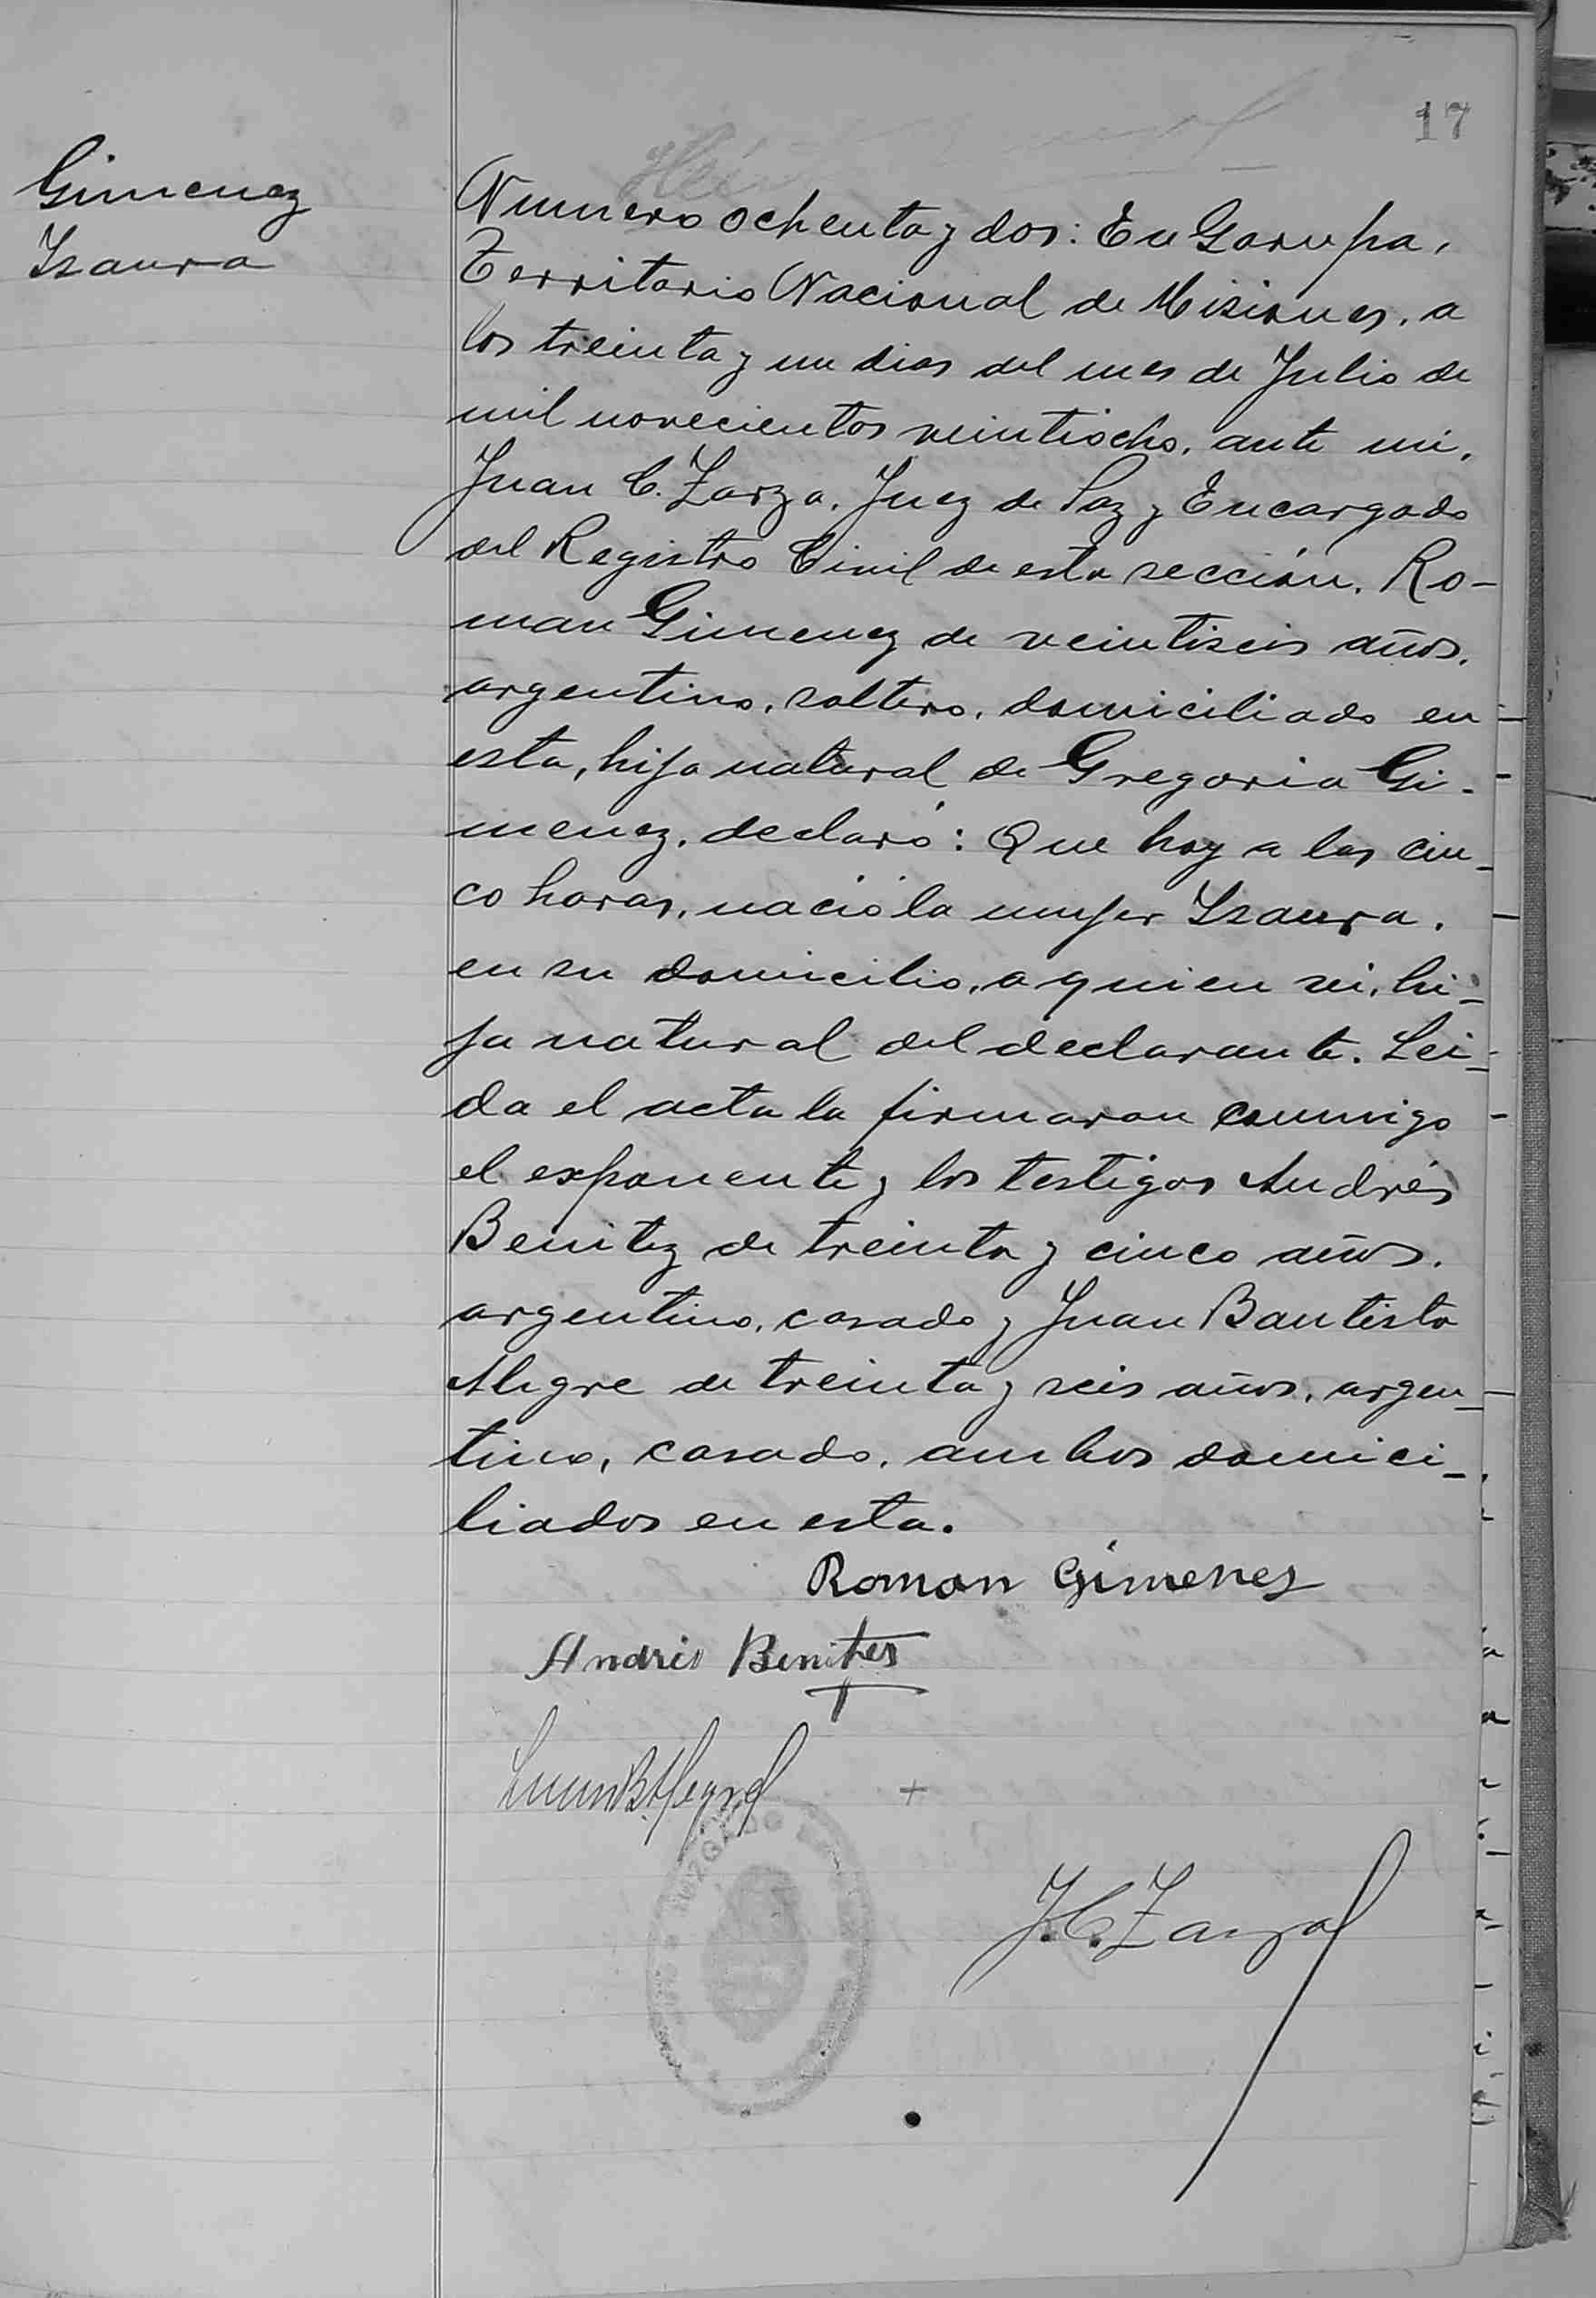 17
Gimenez
Isaura
Numero ochenta y dos: En Garupa,
Territorio Nacional de Misiones, a
los treinta y un dias del mes de Julio de
mil novecientos veintiocho, ante mi,
Juan C. Zarza, Juez de Paz y Encargado
del Registro Civil de esta sección, Ro-
man Gimenez de veintiseis años,
argentino, soltero, domiciliado en
esta, hijo natural de Gregoria Gi-
menez, declaró: Que hoy a las cin-
co horas, nació la mujer Isaura,
en su domicilio, a quien vi, hi-
ja natural del declarante. Lei-
da el acta la firmaron conmigo
el exponente y los testigos Andrés
Benitez de treinta y cinco años,
argentino, casado y Juan Bautista
Alegre de treinta y seis años, argen-
tino, casado, ambos domici-
liados en esta.
Roman Gimenes
Andres Benites
Juan B. Alegre
J.C. Zarza
JUZGADO